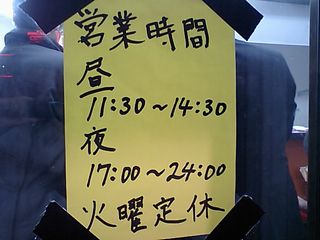 営業時間
昼
11:30〜14:30
夜
17:00〜24:00
火曜定休